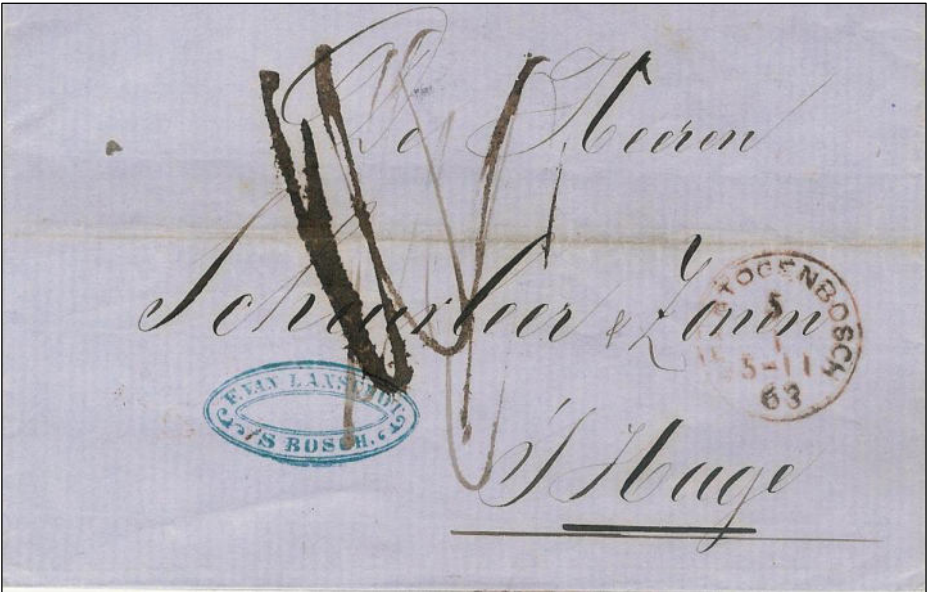 De Heeren
Scheurleer & Zonen
'S Hage
F. VAN LANSCHOT
'S BOSCH.
TOGENBOSCH
5
1
8-11
63